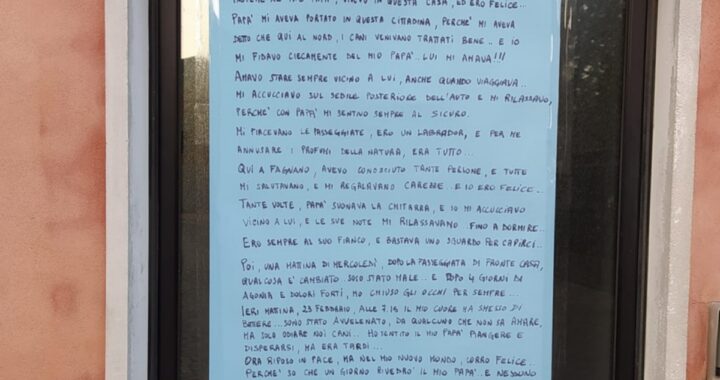 INSIEME AL MIO PAPA', VIVEVO IN QUESTA CASA, ED ERO FELICE..
PAPA' MI AVEVA PORTATO IN QUESTA CITTADINA, PERCHE' MI AVEVA
DETTO CHE QUI AL NORD, I CANI VENIVANO TRATTATI BENE.. E IO
MI FIDAVO CIECAMENTE DEL MIO PAPA'.. LUI MI AMAVA!!!
AMAVO STARE SEMPRE VICINO A LUI, ANCHE QUANDO VIAGGIAVA..
MI ACCUCCIAVO SUL SEDILE POSTERIORE DELL'AUTO E MI RILASSAVO,
PERCHE' CON PAPA' MI SENTIVO SEMPRE AL SICURO.
MI PIACEVANO LE PASSEGGIATE, ERO UN LABRADOR, E PER ME
ANNUSARE I PROFUMI DELLA NATURA, ERA TUTTO...
QUI A FAGNANO, AVEVO CONOSCIUTO TANTE PERSONE, E TUTTE
MI SALUTAVANO, E MI REGALAVANO CAREZZE.. E IO ERO FELICE..
TANTE VOLTE, PAPA' SUONAVA LA CHITARRA, E IO MI ACCUCCIAVO
VICINO A LUI, E LE SUE NOTE MI RILASSAVANO FINO A DORMIRE..
ERO SEMPRE AL SUO FIANCO, E BASTAVA UNO SGUARDO PER CAPIRCI..
POI, UNA MATTINA DI MERCOLEDI', DOPO LA PASSEGGIATA DI FRONTE CASA,
QUALCOSA E' CAMBIATO. SONO STATO MALE.. E DOPO 4 GIORNI DI
AGONIA E DOLORI FORTI, HO CHIUSO GLI OCCHI PER SEMPRE...
IERI MATTINA, 23 FEBBRAIO, ALLE 7.15 IL MIO CUORE HA SMESSO DI
BATTERE... SONO STATO AVVELENATO, DA QUALCUNO CHE NON SA AMARE,
MA SOLO ODIARE NOI CANI.. HO SENTITO IL MIO PAPA' PIANGERE E
DISPERARSI, MA ERA TARDI...
ORA RIPOSO IN PACE, MA NEL MIO NUOVO MONDO, CORRO FELICE..
PERCHE' SO CHE UN GIORNO RIVEDRO' IL MIO PAPA'.. E NESSUNO